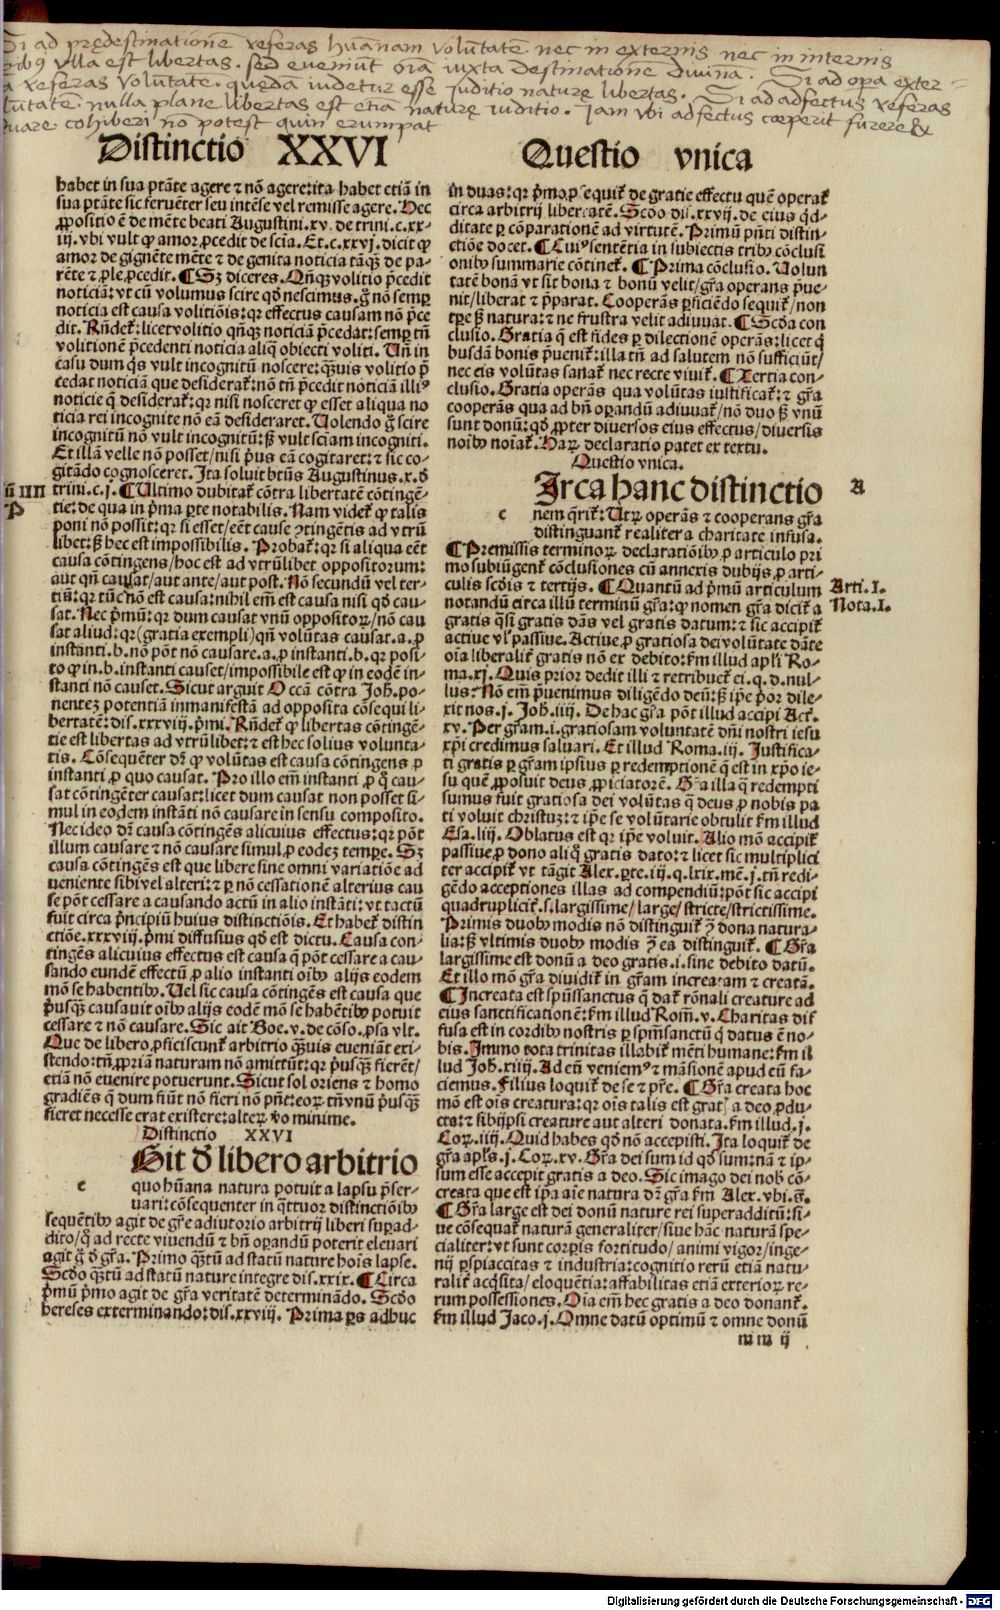 Si ad prędestinationē referas humanam volūtatē nec in externis nec in internis
ribꝰ vlla est libertas. sed eveniūt oīa iuxta destinationē divina. Si ad opa exter-
a referas volūtatē. quędā iudetur esse juditio naturę libertas. Si ad adfectus referas
lūtatē. nulla plane libertas est etiā naturę iuditio. Iam vbi adfectus cœperit furere &
duare. cohiberi nō potest quin erumpat
Distinctio XXVI
habet in sua ptāte agere ⁊ nō agere:ita habet etiā in
sua ptāte sic feruēter seu intēse vel remisse agere. Hec
ꝓpositio ē de mēte beati Augustini.xv. de trini.c.xx-
iij. vbi vult ꝙ amor ꝓcedit de scīa. Et.c.xxvj.dicit ꝙ
amor de gignēte mēte ⁊ de genita noticia tāꝙ de pa-
rēte ⁊ ꝓle ꝓcedit. ¶ Sꝫ diceres. Qñqꝫ volitio p̄cedit
noticiā: vt cū volumus scire qđ nescimus. g̊ nō semꝑ
noticia est causa volitiōis: qꝛ effectus causam nō p̄ce
dit. Rñdeꞇ̄: licet volitio qñqꝫ noticiā p̄cedat: semꝑ tñ
volitionē p̄cedenti noticia aliq̄ obiecti voliti. Uñ in
casu dum q̄s vult incognitū noscere: qꝫuis volitio p̄
cedat noticiā que desideraꞇ̄: nō tñ p̄cedit noticiā illiꝰ
noticie q̄ desideraꞇ̄: qꝛ nisi nosceret ꝙ esset aliqua no
ticia rei incognite nō eā desideraret. Uolendo g̊ scire
incognitū nō vult incognitū: sꝫ vult sciam incogniti.
Et illā velle nō posset/nisi p̄us eā cogitaret: ⁊ sic co-
gitādo cognosceret. Ita soluit btūs Augustinus.x.đ
trini.c.j. ¶ Ultimo dubitaꞇ̄ cōtra libertatē cōtingē-
tie: de qua in p̄ma ꝑte notabilis. Nam videꞇ̄ ꝙ talis
poni nō possit: qꝛ si esset/eēt cause ꝯtingētis ad vtrū
libet: sꝫ hec est impossibilis. Probaꞇ̄: qꝛ si aliqua eēt
causa cōtingens/hoc est ad vtrūlibet oppositorum:
aut qñ causat/aut ante/aut post. Nō secundū vel ter-
tiū: qꝛ tūc nō est causa: nihil em̄ est causa nisi qđ cau-
sat. Nec p̄mū: qꝛ dum causat vnū oppositoꝝ/nō cau
sat aliud: qꝛ (gratia exempli) qñ volūtas causat.a.ꝓ
instanti.b.nō pōt nō causare.a.ꝓ instanti.b. qꝛ posi-
to ꝙ in.b.instanti causet/impossibile est ꝙ in eodē in-
stanti nō causet. Sicut arguit Occā cōtra Joh̄. po-
nentez potentiā inmanifestā ad opposita cōsequi li-
bertatē: dis.xxxviij.p̄mi. Rñdeꞇ̄ ꝙ libertas cōtingē-
tie est libertas ad vtrūlibet: ⁊ est hec solius volunta-
tis. Cōsequēter dꝛ̄ ꝙ volūtas est causa cōtingens ꝓ
instanti ꝓ quo causat. Pro illo em̄ instanti ꝓ q̊ cau-
sat cōtingēter causat: licet dum causat non posset si-
mul in eodem instāti nō causare in sensu composito.
Nec ideo dꝛ̄ causa cōtingēs alicuius effectus: qꝛ pōt
illum causare ⁊ nō causare simul ꝓ eodez tempꝛe. Sꝫ
causa cōtingēs est que libere sine omni variatiōe ad
ueniente sibi vel alteri: ⁊ ꝑ nō cessationē alterius cau
se pōt cessare a causando actū in alio instāti: vt tactū
fuit circa p̄ncipiū huius distinctiōis. Et habeꞇ̄ distin
ctiōe.xxxviij.p̄mi diffusius qđ est dictu. Causa con-
tingēs alicuius effectus est causa q̄ pōt cessare a cau-
sando eundē effectū ꝓ alio instanti oībꝫ alijs eodem
mō se habentibꝫ. Uel sic causa cōtingēs est causa que
p̄usqꝫ causauit oībꝫ alijs eodē mō se habētibꝫ potuit
cessare ⁊ nō causare. Sic ait Boe.v.de cōso.ꝓsa vlt.
Que de libero ꝓficiscunꞇ̄ arbitrio qꝫuis eueniāt exi-
stendo: tñ ꝓpriā naturam nō amittūt: qꝛ p̄usqꝫ fierēt/
etiā nō euenire potuerunt. Sicut sol oriens ⁊ homo
gradiēs q̄ dum fiūt nō fieri nō pñt: eoꝝ tñ vnū p̄usqꝫ
fieret necesse erat existere: alteꝝ v̊o minime.
Distinctio XXVI
Sit đ libero arbitrio
e quo hūana natura potuit a lapsu p̄ser-
uari: cōsequenter in q̄ttuor distinctiōibꝫ
sequētibꝫ agit de gr̄e adiutorio arbitrij liberi suꝑad-
dito/q̊ ad recte viuendū ⁊ bñ oꝑandū poterit eleuari
agit g̊ đ gr̄a. Primo qꝫtū ad statū nature hoīs lapse.
Scđo qꝫtū ad statū nature integre dis.xxix. ¶ Circa
p̄mū p̄mo agit de gr̄a veritatē determinādo. Scđo
hereses exterminando: dis.xxviij. Prima ꝑs adhuc
ū IIII
P
Questio vnica
in duas: qꝛ p̄mo ꝓsequiꞇ̄ de gratie effectu quē operaꞇ̄
circa arbitrij libertatē. Scđo dis.xxvij. de eius q̄d-
ditate ꝑ cōparationē ad virtutē. Primū pñti distin-
ctiōe docet. ¶ Cuiꝰ sentētia in subiectis tribꝫ cōclusi
onibꝫ summarie cōtineꞇ̄. ¶ Prima cōclusio. Uolun
tatē bonā vt sit bona ⁊ bonū velit/gr̄a operans p̄ue-
nit/liberat ⁊ p̄parat. Cooperās ꝑficiēdo sequiꞇ̄/non
tꝑe sꝫ natura: ⁊ ne frustra velit adiuuat. ¶ Scđa con
clusio. Gratia q̄ est fides ꝑ dilectionē operās: licet q̄
busdā bonis p̄ueniꞇ̄: illa tñ ad salutem nō sufficiūt/
nec eis volūtas sanaꞇ̄ nec recte viuiꞇ̄. ¶ Tertia con-
clusio. Gratia operās qua volūtas iustificaꞇ̄: ⁊ gr̄a
cooperās qua ad bñ oꝑandū adiuuaꞇ̄/nō duo sꝫ vnū
sunt donū: qđ ꝓpter diuersos eius effectus/diuersis
noībꝫ noīaꞇ̄. Haꝝ declaratio patet ex textu.
Questio vnica.
Irca hanc distinctio
c nem q̄riꞇ̄: Utꝝ operās ⁊ cooperans gr̄a
distinguanꞇ̄ realiter a charitate infusa.
¶ Premissis terminoꝝ declaratiōibꝫ ꝓ articulo pri
mo subiūgenꞇ̄ cōclusiones cū annexis dubijs ꝓ arti-
culis scđis ⁊ tertijs. ¶ Quantū ad p̄mū articulum
notandū circa illū terminū gr̄a: ꝙ nomen gr̄a diciꞇ̄ a
gratis q̄si gratis dās vel gratis datum: ⁊ sic accipiꞇ̄
actiue vꝉ passiue. Actiue ꝓ gratiosa dei volūtate dāte
oīa liberaliꞇ̄ gratis nō ex debito: ẜm illud apli Ro-
ma.xj. Quis prior dedit illi ⁊ retribueꞇ̄ ei.q.d.nul-
lus: Nō em̄ p̄uenimus diligēdo deū: sꝫ ip̄e p̄or dile-
xit nos.j. Joh̄.iiij. De hac gr̄a pōt illud accipi Act̄.
xv. Per gr̄am.i.gratiosam voluntatē dñi nostri iesu
xp̄i credimus saluari. Et illud Roma.iij. Justifica-
ti gratis ꝑ gr̄am ipsius ꝑ redemptionē q̄ est in xp̄o ie-
su quē ꝓposuit deus ꝓpiciatorē. Gr̄a illa q̄ redempti
sumus fuit gratiosa dei volūtas q̄ deus ꝓ nobis pa
ti voluit christuz: ⁊ ip̄e se volūtarie obtulit ẜm illud
Esa.liij. Oblatus est qꝛ ip̄e voluit. Alio mō accipiꞇ̄
passiue ꝓ dono aliq̊ gratis dato: ⁊ licet sic multiplici
ter accipiꞇ̄ vt tāgit Alex.ꝑte.iij.q.lxix.mē.j. tñ redi-
gēdo acceptiones illas ad compendiū: pōt sic accipi
quadrupliciꞇ̄.s.largissime/large/stricte/strictissime.
Primis duobꝫ modis nō distinguiꞇ̄ ꝯ̄ dona natura-
lia: sꝫ vltimis duobꝫ modis ꝯ̄ ea distinguiꞇ̄. ¶ Gr̄a
largissime est donū a deo gratis.i.sine debito datū.
Et illo mō gr̄a diuidiꞇ̄ in gr̄am increatam ⁊ creatā.
¶ Increata est spūssanctus q̄ daꞇ̄ rōnali creature ad
eius sanctificationē: ẜm illud Rom̄.v. Charitas dif
fusa est in cordibꝫ nostris ꝑ spm̄sanctū q̄ datus ē no-
bis. Immo tota trinitas illabiꞇ̄ mēti humane: ẜm il
lud Joh̄.xiiij. Ad eū veniemꝰ ⁊ māsionē apud eū fa-
ciemus. Filius loquiꞇ̄ de se ⁊ pr̄e. ¶ Gr̄a creata hoc
mō est oīs creatura: qꝛ oīs talis est gratis a deo ꝓdu-
cta: ⁊ sibijpsi creature aut alteri donata. ẜm illud.j.
Coꝝ.iiij. Quid habes qđ nō accepisti. Ita loquiꞇ̄ de
gr̄a apls.j. Coꝝ.xv. Gr̄a dei sum id qđ sum: nā ⁊ ip-
sum esse accepit gratis a deo. Sic imago dei nob̄ cō-
creata que est ip̄a aīe natura dꝛ̄ gr̄a ẜm Alex.vbi.s̄.
¶ Gr̄a large est dei donū nature rei suꝑadditū: si-
ue cōsequaꞇ̄ naturā generaliter/siue hāc naturā spe-
cialiter: vt sunt corꝑis fortitudo/animi vigor/inge-
nij ꝑspiaccitas ⁊ industria: cognitio rerū etiā natu-
raliꞇ̄ acq̄sita/eloquētia: affabilitas etiā exterioꝝ re-
rum possessiones. Oīa em̄ hec gratis a deo donanꞇ̄.
ẜm illud Jaco.j. Omne datū optimū ⁊ omne donū
m m ij
A
Arti.I.
Nota.I.
Digitalisierung gefördert durch die Deutsche Forschungsgemeinschaft - DFG